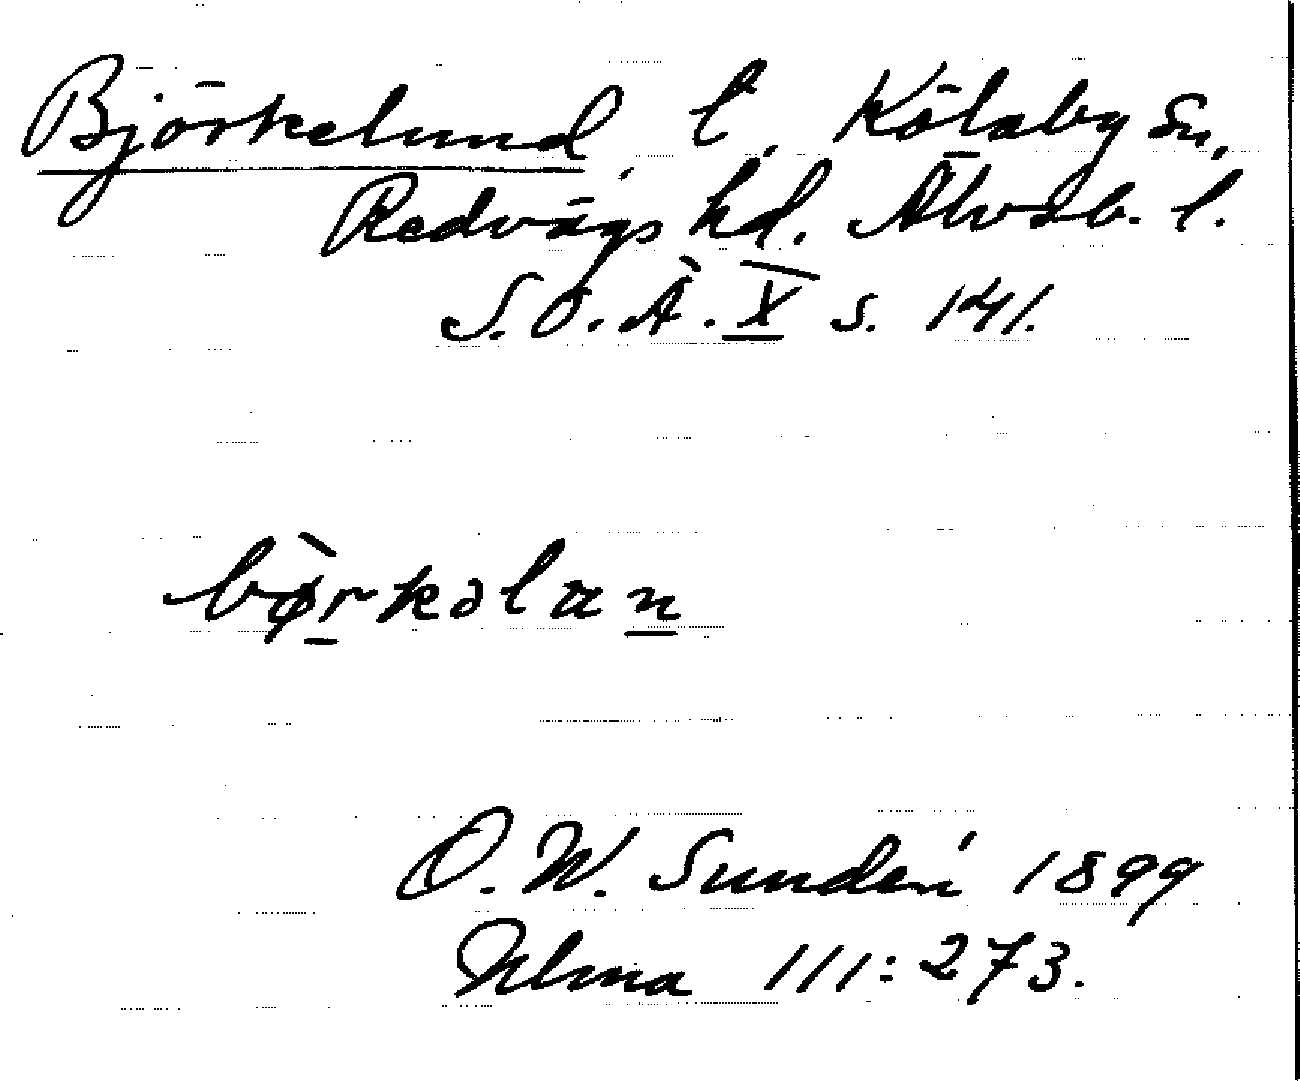 Björkelund, l, Kölaby sn,
Redvägs hd. Älvsb. l.
S.O.Ä. X s. 141.
bø̀rkəlan
O. W. Sundén 1899
Ulma 111:273.